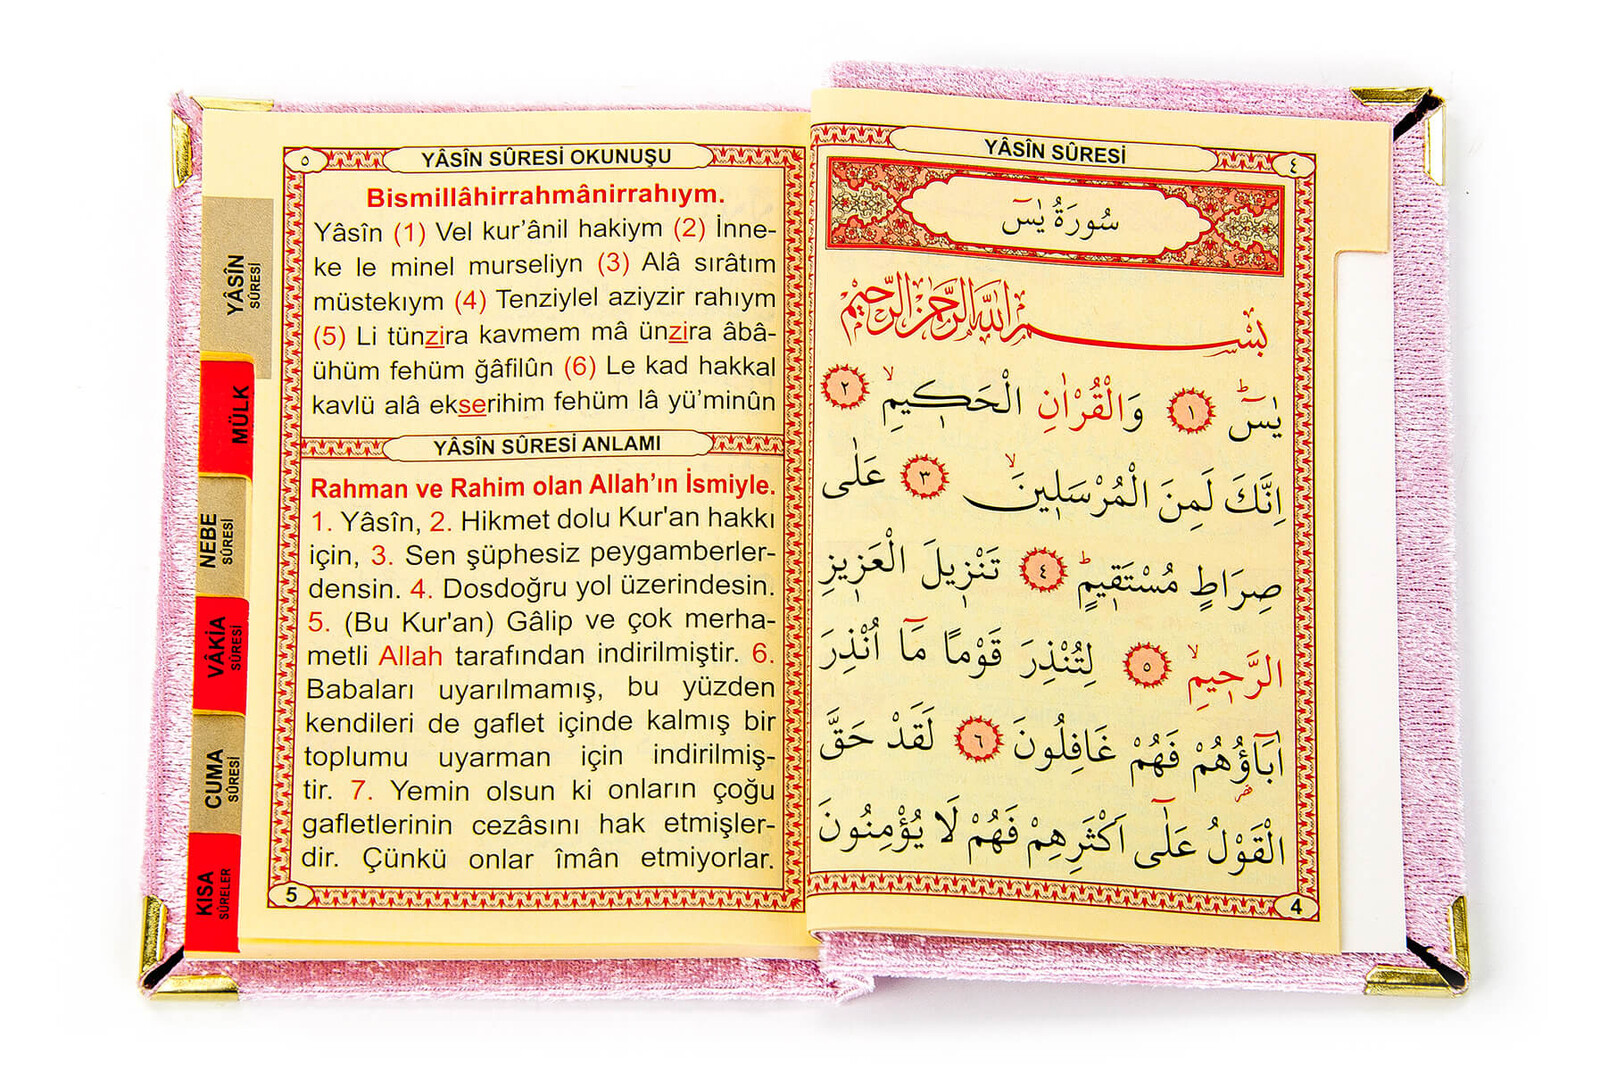 ٥
YÂSÎN SÛRESİ OKUNUŞU
Bismillâhirrahmânirrahıym.
Yâsîn (1) Vel kur’ânil hakiym (2) İnne-
ke le minel murseliyn (3) Alâ sırâtım
müstekıym (4) Tenziylel aziyzir rahıym
(5) Li tünzira kavmem mâ ünzira âbâ-
ühüm fehüm ğâfilûn (6) Le kad hakkal
kavlü alâ ekserihim fehüm lâ yü’minûn
YÂSÎN SÛRESİ ANLAMI
Rahman ve Rahim olan Allah’ın İsmiyle.
1. Yâsîn, 2. Hikmet dolu Kur'an hakkı
için, 3. Sen şüphesiz peygamberler-
densin. 4. Dosdoğru yol üzerindesin.
5. (Bu Kur'an) Gâlip ve çok merha-
metli Allah tarafından indirilmiştir. 6.
Babaları uyarılmamış, bu yüzden
kendileri de gaflet içinde kalmış bir
toplumu uyarman için indirilmiş-
tir. 7. Yemin olsun ki onların çoğu
gafletlerinin cezâsını hak etmişler-
dir. Çünkü onlar îmân etmiyorlar.
5
YÂSÎN
SÛRESİ
MÜLK
NEBE
SÛRESİ
VÂKİA
SÛRESİ
CUMA
SÛRESİ
KISA
SÛRELER
YÂSÎN SÛRESİ
٤
سُورَةُ يٰسٓ
بِسْمِ اللّٰهِ الرَّحْمٰنِ الرَّحِيمِ
يٰسٓ ۜ ١ وَالْقُرْاٰنِ الْحَكِيمِ ۙ ٢
اِنَّكَ لَمِنَ الْمُرْسَلِينَ ۙ ٣ عَلٰى
صِرَاطٍ مُسْتَقِيمٍ ۜ ٤ تَنْزِيلَ الْعَزِيزِ
الرَّحِيمِ ۙ ٥ لِتُنْذِرَ قَوْمًا مَٓا اُنْذِرَ
اٰبَٓاؤُهُمْ فَهُمْ غَافِلُونَ ٦ لَقَدْ حَقَّ
الْقَوْلُ عَلٰٓى اَكْثَرِهِمْ فَهُمْ لَا يُؤْمِنُونَ
4